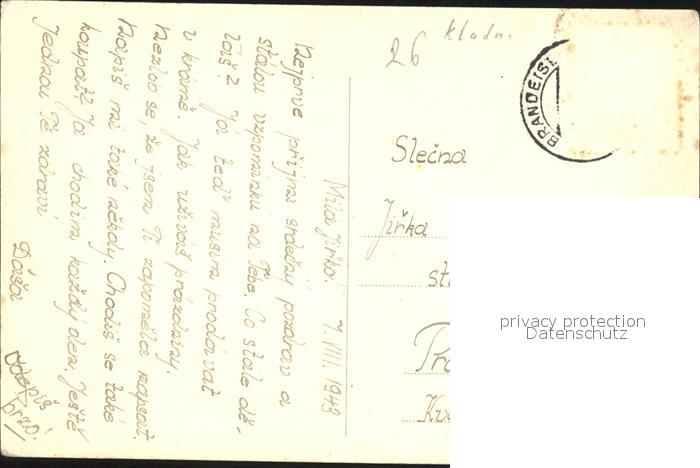 Milá Jiřko! 7. VIII. 1943
Nejprve přijmi srdečný pozdrav a
stálou vzpomínku na Tebe. Co stále dě-
láš? Já teď musím prodávat
v krámě. Jak užíváš prázdniny.
Nezlob se, že jsem Ti zapoměla napsat.
Napiš mi také někdy. Chodíš se také
koupat? Já chodím každý den. Ještě
jednou Tě zdraví
Dáša
brzo!
26 Kladn.
BRANDEIS
Slečna
Jiřka
st
Pra
Kv
privacy protection
Datenschutz